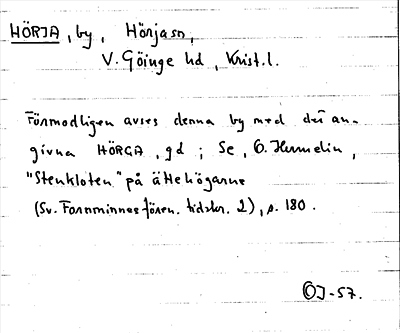 HÖRJA, by, Hörjasn,
V. Göinge hd, Krist.l.
Förmodligen avses denna by med det an-
givna HÖRGA, gd; Se, O. Hermelin,
"Stenkloten" på ättehögarne
(Sv. Fornminnesfören. tidskr. 2), s. 180.
OJ-57.